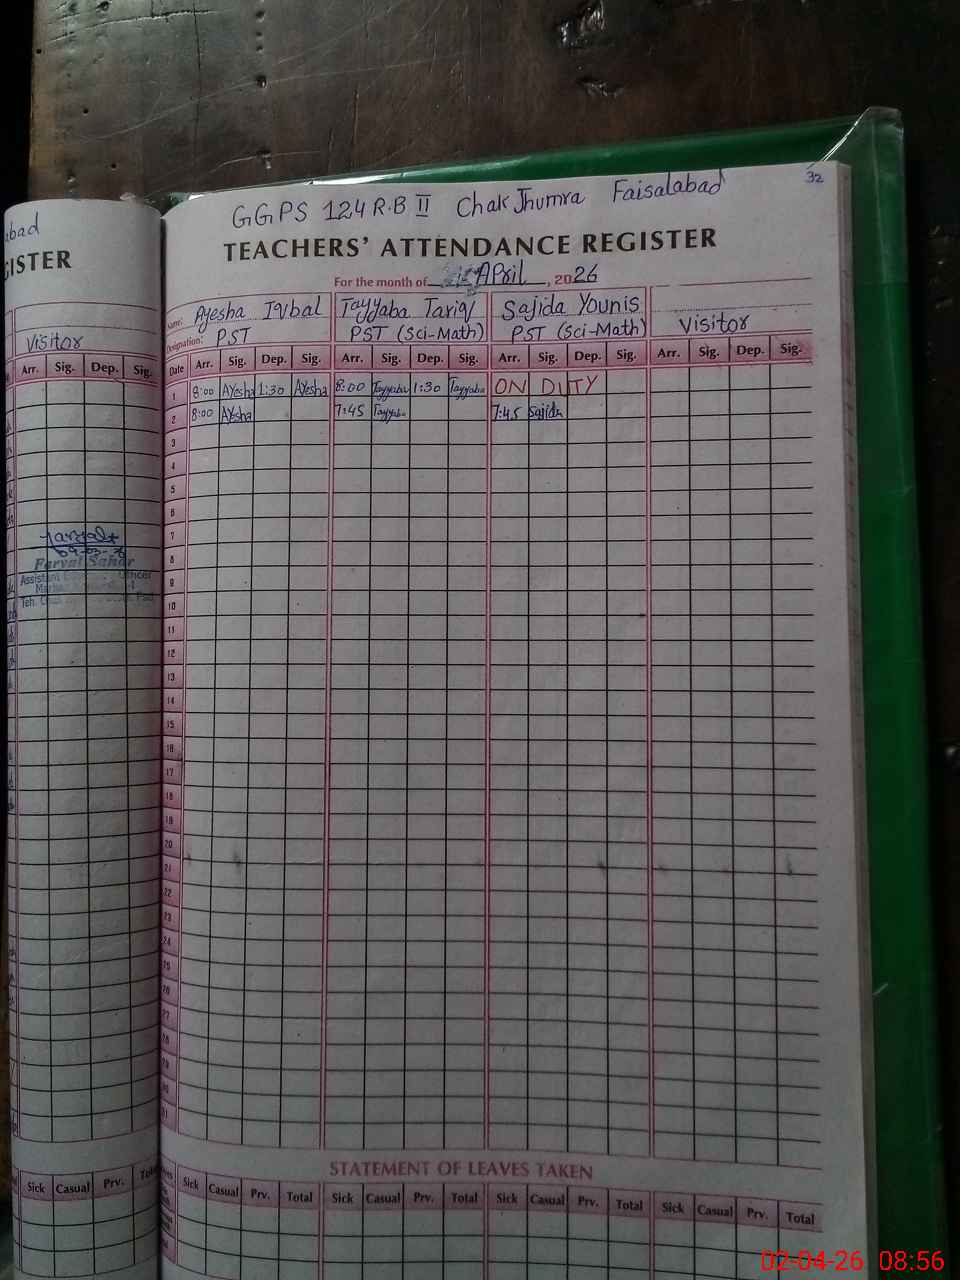 32
GGPS 124 R.B II Chak Jhumra Faisalabad
TEACHERS' ATTENDANCE REGISTER
For the month of April, 2026
Name: Ayesha Iqbal Tayyaba Tariq Sajida Younis
Designation: PST PST (Sci-Math) PST (Sci-Math) Visitor
Date Arr. Sig. Dep. Sig. Arr. Sig. Dep. Sig. Arr. Sig. Dep. Sig. Arr. Sig. Dep. Sig.
1 8:00 Ayesha 1:30 Ayesha 8:00 Tayyaba 1:30 Tayyaba ON DUTY
2 8:00 Ayesha 7:45 Tayyaba 7:45 Sajida
3
4
5
6
7
8
9
10
11
12
13
14
15
16
17
18
19
20
21
22
23
24
25
26
27
28
29
30
31
STATEMENT OF LEAVES TAKEN
Sick Casual Prv. Total Sick Casual Prv. Total Sick Casual Prv. Total Sick Casual Prv. Total
abad
GISTER
Visitor
Arr. Sig. Dep. Sig.
Farhat Sahar
Assistant Officer
Sick Casual Prv. Total
02-04-26 08:56